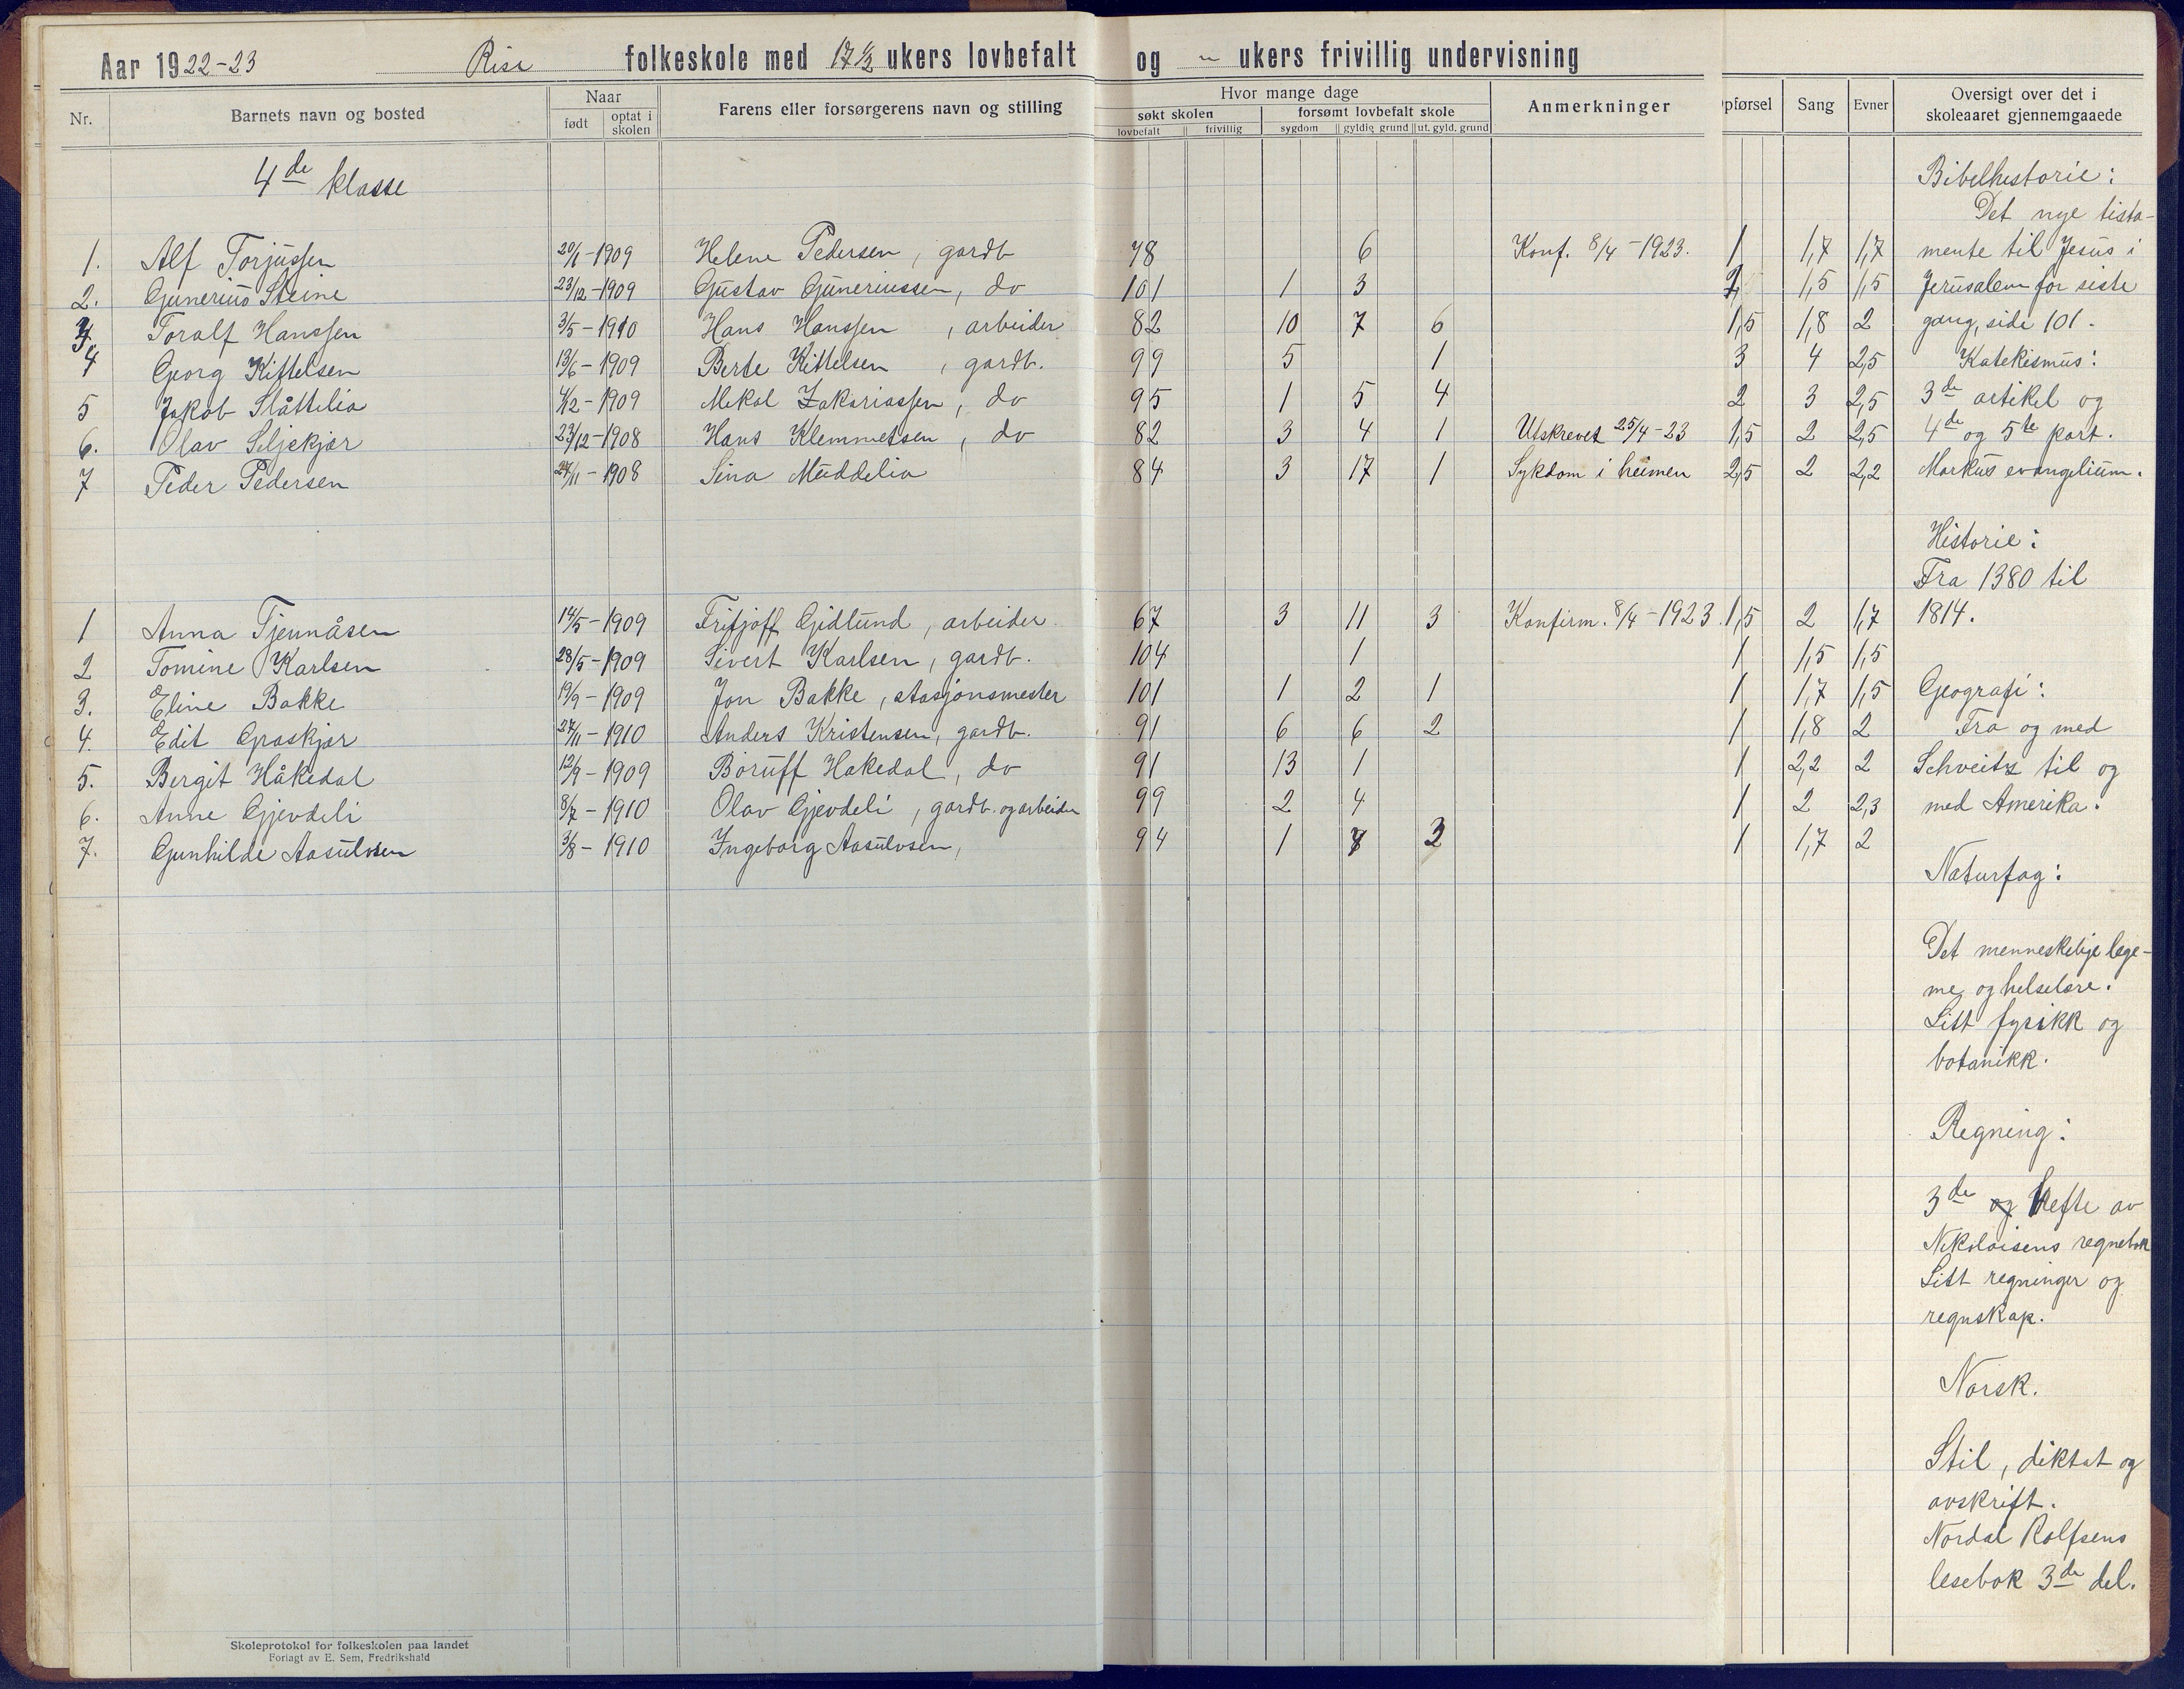 Aar 1922-23 Rise folkeskole med 17 1/2 ukers lovbefalt og " ukers frivillig undervisning
Nr. Barnets navn og bosted Naar født optat i skolen Farens eller forsørgerens navn og stilling Hvor mange dage søkt skolen lovbefalt frivillig forsømt lovbefalt skole sygdom gyldig grund ut. gyld. grund Anmerkninger pførsel Sang Evner Oversigt over det i skoleaaret gjennemgaaede
4de klasse
Bibelhistorie:
Det nye testa-
1. Alf Torjussen 20/1-1909 Helene Pedersen, gardb 78 6 Konf. 8/4-1923. 1 1,7 1,7 mente til Jesus i
2. Gunerius Steine 23/12-1909 Gustav Guneriussen, do 101 1 3 1,5 1,5 Jerusalem for siste
3. Toralf Hanssen 3/5-1910 Hans Hanssen, arbeider 82 10 7 6 1,5 1,8 2 gang, side 101.
4 Georg Kittelsen 13/6-1909 Berte Kittelsen, gardb. 99 5 1 3 4 2,5 Katekismus:
5 Jakob Slåttelia 4/12-1909 Mekal Zakariassen, do 95 1 5 4 2 3 2,5 3de artikel og
6. Olav Seljekjær 23/12-1908 Hans Klemmetsen, do 82 3 4 1 Utskrevet 25/4-23 1,5 2 2,5 4de og 5te part.
7 Peder Pedersen 24/11-1908 Sina Maddelia 84 3 17 1 Sykdom i heimen 2,5 2 2,2 Markus evangelium.
Historie:
Fra 1380 til
1 Anna Tjennåsen 14/5-1909 Fritjoff Gidlund, arbeider. 67 3 11 3 Konfirm. 8/4-1923. 1,5 2 1,7 1814.
2 Tomine Karlsen 28/5-1909 Sivert Karlsen, gardb. 104 1 1 1,5 1,5
3. Eline Bakke 19/9-1909 Jon Bakke, stasjonsmester 101 1 2 1 1 1,7 1,5 Geografi:
4. Edit Graskjær 27/11-1910 Anders Kristensen, gardb. 91 6 6 2 1 1,8 2 Fra og med
5. Bergit Håkedal 12/9-1909 Boruff Hakedal, do 91 13 1 1 2,2 2 Schveitz til og
6. Anne Gjevdeli 8/7-1910 Olav Gjevdeli, gardb. og arbeider 99 2 4 1 2 2,3 med Amerika.
7. Gunhilde Aasulvsen 3/8-1910 Ingeborg Aasulvsen, 94 1 2 1 1,7 2
Naturfag:
Det menneskelige lege-
me og helselære.
Litt fysikk og
botanikk.
Regning:
3de og hefte av
Nikolaisens regnebok
Litt regninger og
regnskap.
Norsk.
Stil, diktat og
avskrift.
Nordal Rolfsens
lesebok 3de del.
Skoleprotokol for folkeskolen paa landet
Forlagt av E. Sem, Fredrikshald